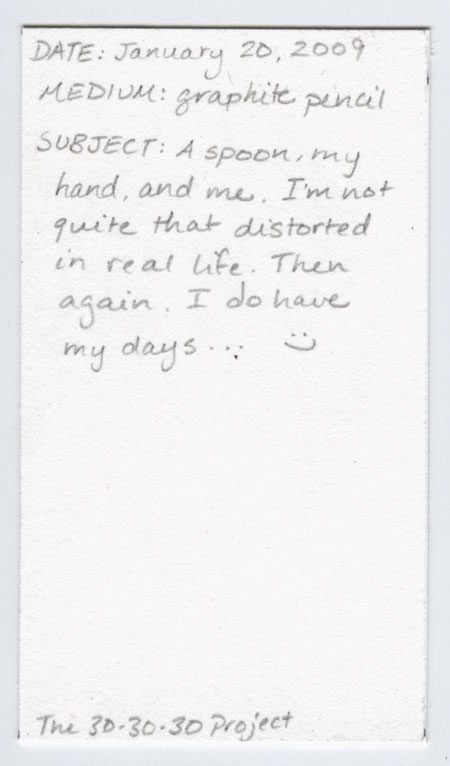 DATE: January 20, 2009
MEDIUM: graphite pencil
SUBJECT: A spoon, my
hand, and me. I'm not
quite that distorted
in real life. Then
again, I do have
my days... :)
The 30-30-30 Project